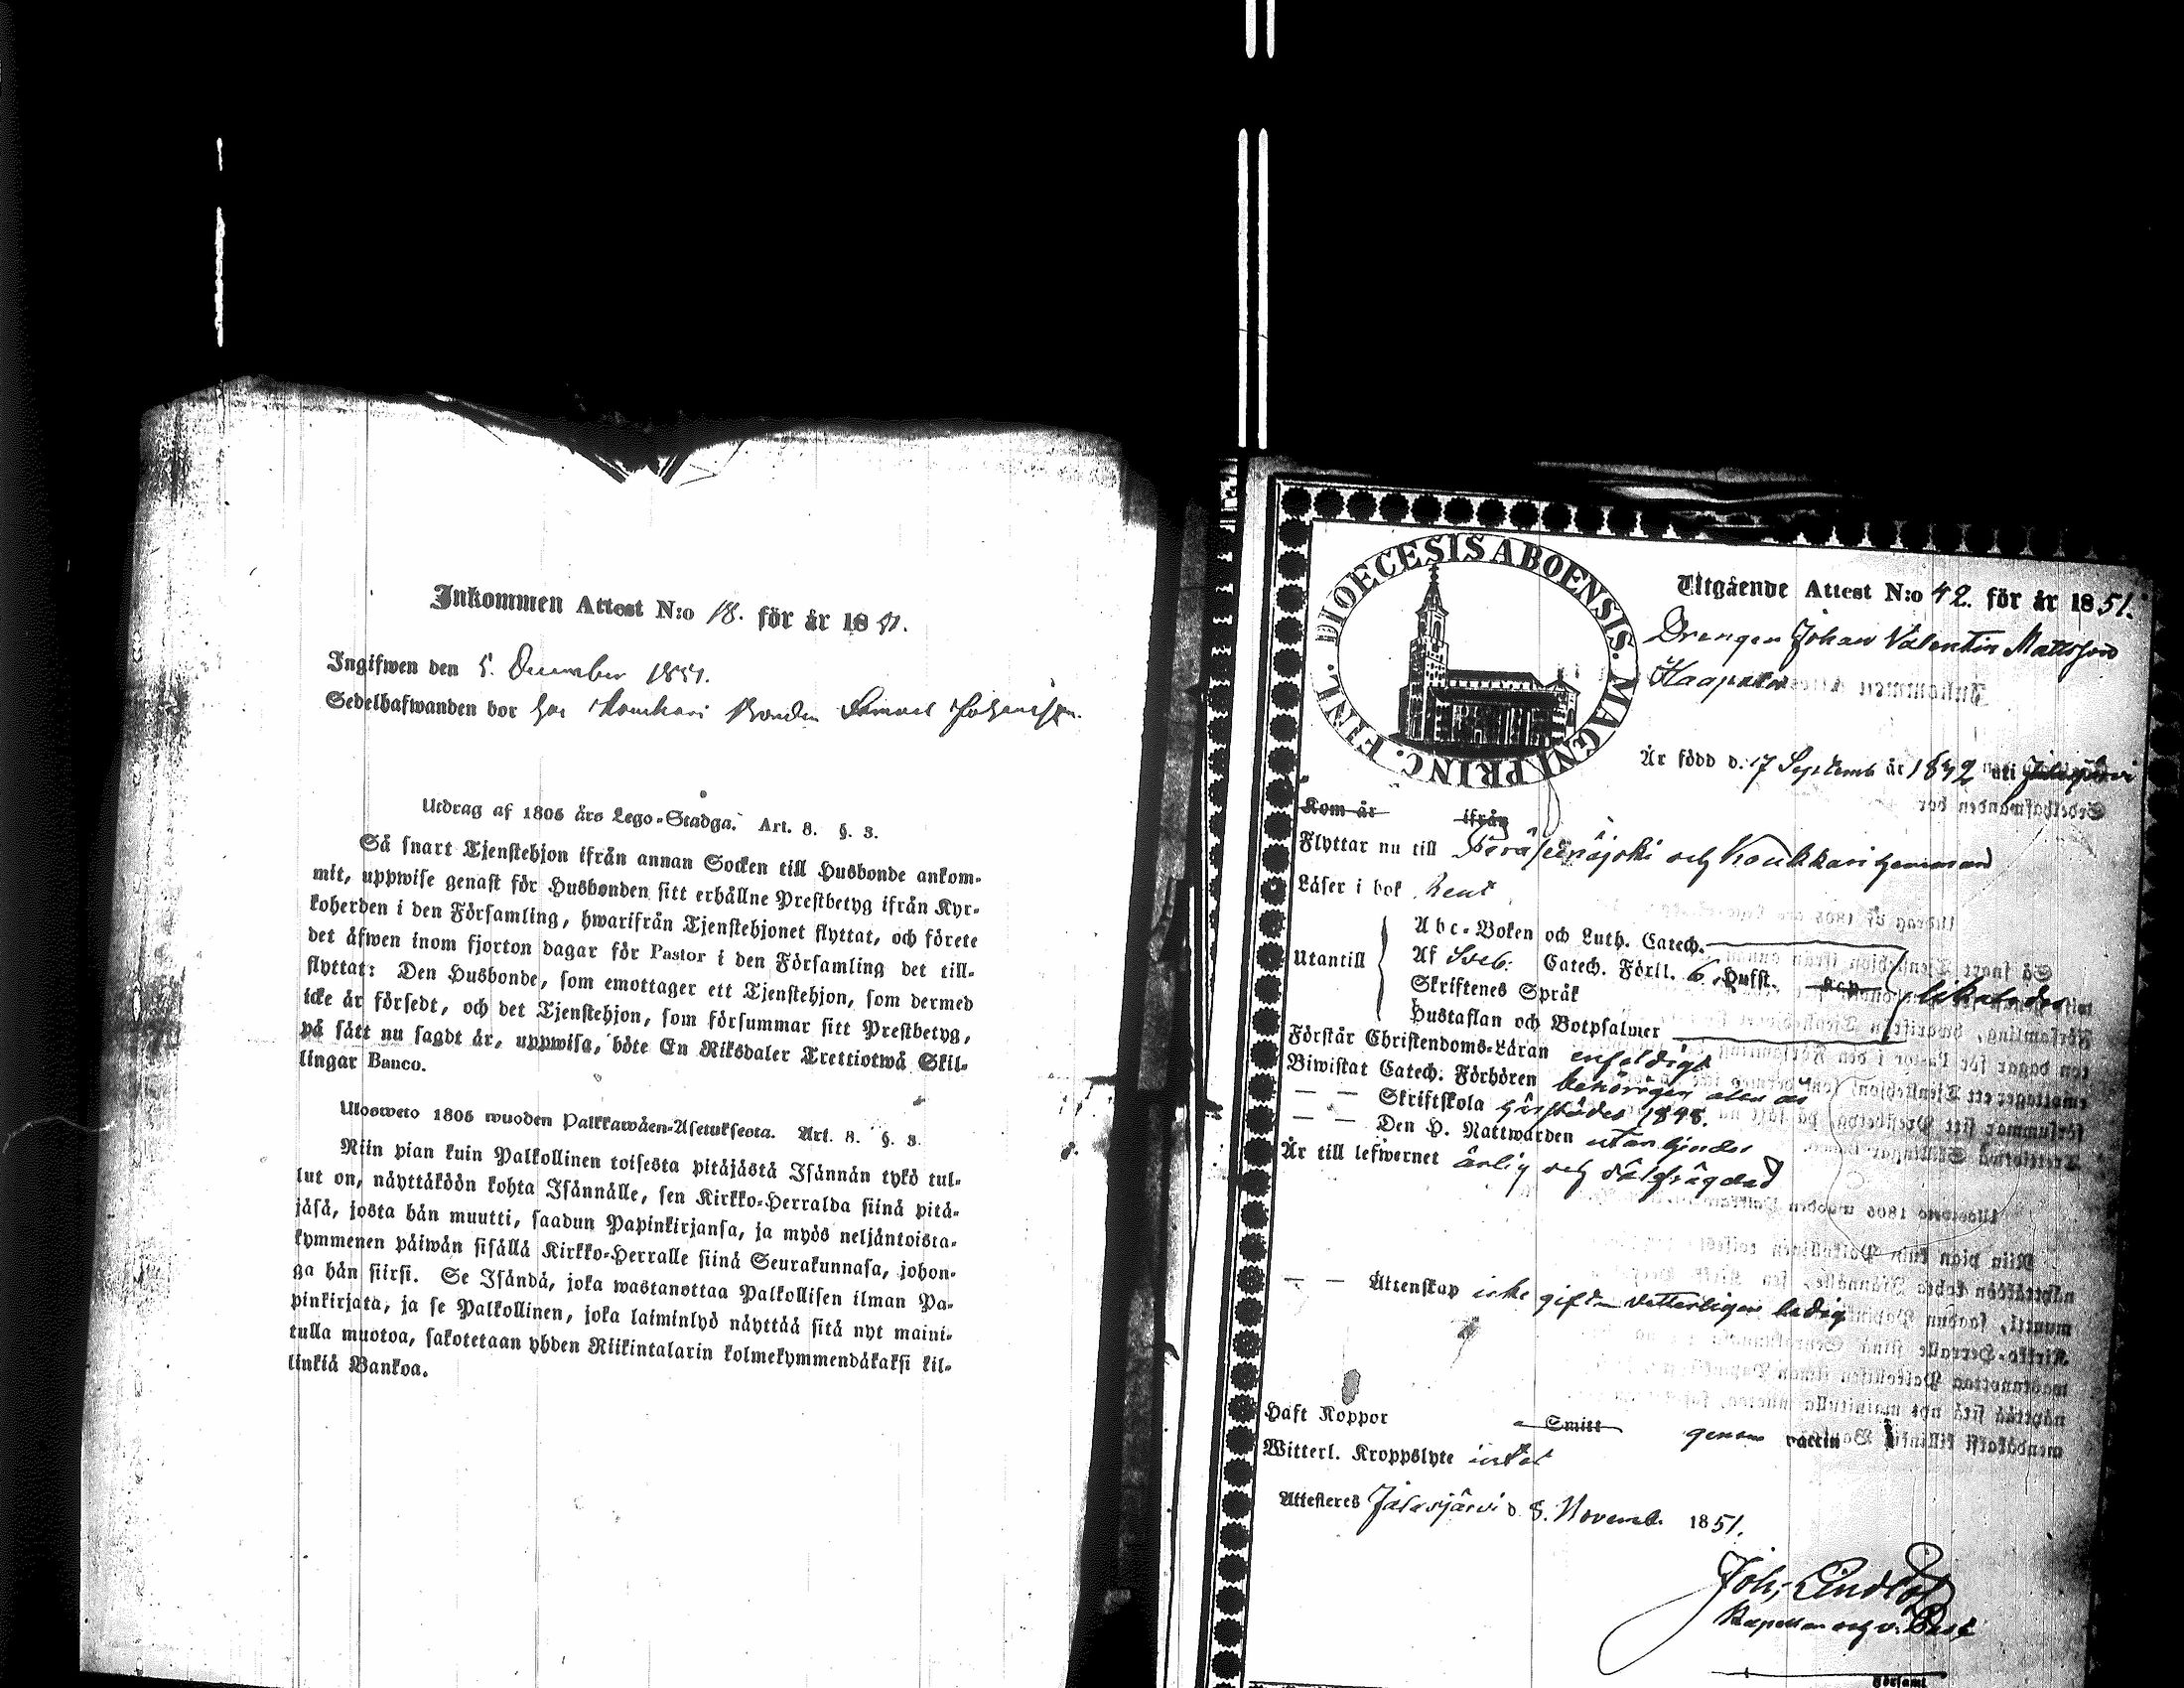 Inkommen Attest N:o 18. för år 1851.
Ingifwen den 5. December 1851.
Sedelhafwanden bor hos Koukkari Bonden Samuel Johansson.
Utdrag af 1805 års Lego-Stadga. Art. 8. §. 3.
Så snart Tjenstehjon ifrån annan Socken till Husbonde ankom-
mit, uppwise genast för Husbonden sitt erhållne Prestbetyg ifrån Kyr-
koherden i den Församling, hwarifrån Tjenstehjonet flyttat, och förete
det åfwen inom fjorton dagar för Pastor i den Församling det till-
flyttat: Den Husbonde, som emottager ett Tjenstehjon, som dermed
icke är försedt, och det Tjenstehjon, som försummar sitt Prestbetyg,
på sätt nu sagdt är, uppwisa, böte En Riksdaler Trettiotwå Skil-
lingar Banco.
Ulosweto 1805 wuoden Palkkawäen-Asetuksesta. Art. 8. §. 3.
Niin pian kuin Palkollinen toisesta pitäjästä Isännän tykö tul-
lut on, näyttäköön kohta Isännälle, sen Kirkko-Herralda siinä pitä-
jäsä, josta hän muutti, saadun Papinkirjansa, ja myös neljäntoista-
kymmenen päiwän sisällä Kirkko-Herralle siinä Seurakunnasa, johon-
ga hän siirsi. Se Isändä, joka wastanottaa Palkollisen ilman Pa-
pinkirjata, ja se Palkollinen, joka laiminlyö näyttää sitä nyt maini-
tulla muotoa, sakotetaan yhden Riikintalarin kolmekymmendäkaksi kil-
linkiä Bankoa.
DIOECESIS ABOENSIS. MAGNI PRINC. FINL.
Utgående Attest N:o 42. för år 1851.
Drengen Johan Valentin Mattsson
Är född d. 17 Septemb år 1832 uti Jalasjärvi
Kom år ifrån
Flyttar nu till Peräseinäjoki och Koukkari hemman
Läser i bok rent
Abc-Boken och Luth. Catech.
Utantill Af Sveb. Catech. Förkl. 6 Hufst. Kap. likaledes
Skriftenes Språk
Hustaflan och Botpsalmer
Förstår Christendoms-Läran enfaldigt
Biwistat Catech. Förhören behörigen
— — Skriftskola 1848.
— — Den H. Nattwarden utan hinder
Är till lefwernet ärlig och välfrägdad
— — Äktenskap icke gift
Haft Koppor Smitt genom vaccin
Witterl. Kroppslyte intet
Attesteres Jalasjärvi d. 8. Novemb. 1851.
Kapellan och v. Past
Församl